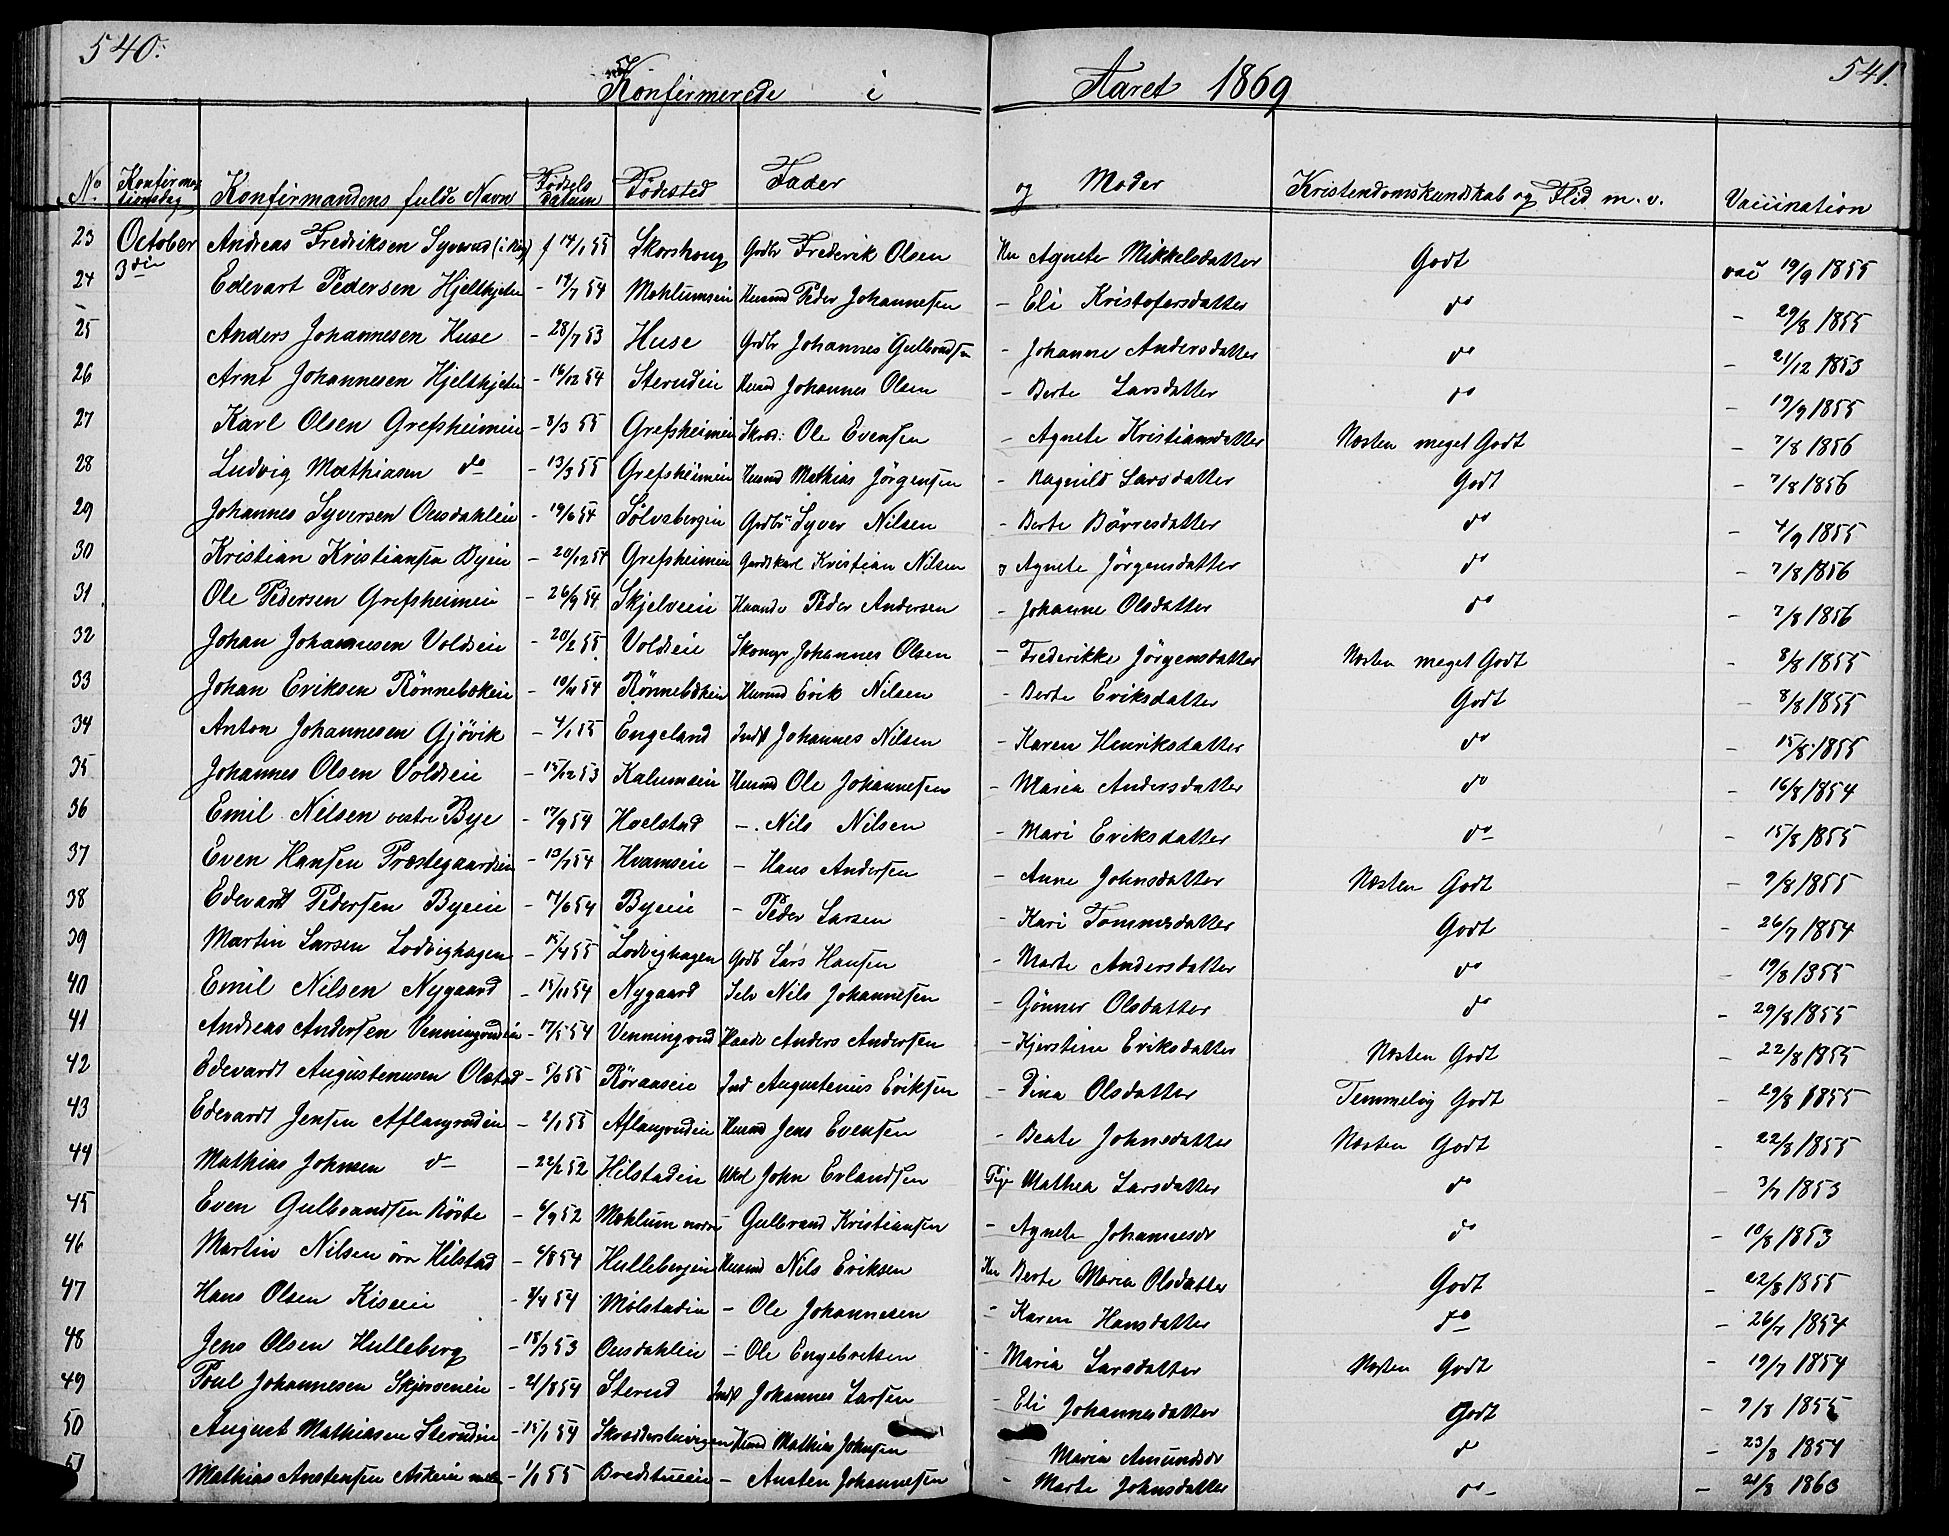 540.
541.
Konfirmerede i Aaret 1869
No Konfirmationsdag Konfirmandens fulde Navn Fødselsdatum Fødested Fader og Moder Kristendomskundskab og Flid m. v. Vaccination
23 October 3die Andreas Fredriksen f 14/1 55 Skorshoug Grdbr Frederik Olsen Ku Agnete Mikkelsdatter Godt vac 19/9 1855
24 Edevart Pedersen Hjelskjeten - 14/7 54 Mohlumsein Husmd Peder Johannesen - Eli Kristofersdatter do - 29/8 1855
25 Anders Johannesen Huse - 28/7 53 Huse Grdbr Johannes Gulbrandsen - Johanne Andersdatter do - 21/12 1853
26 Arnt Johannesen Hjelskjeten - 16/12 54 Sterudein Husmd Johannes Olsen - Berte Larsdatter do - 19/9 1855
27 Karl Olsen Grefsheimein - 3/3 55 Grefsheimein Skræd: Ole Evensen - Agnete Kristiansdatter Næsten meget Godt - 7/8 1856
28 Ludvig Mathiasen do - 13/3 55 Grefsheimein Husmd Mathias Jørgensen - Ragnild Larsdatter Godt - 7/8 1856
29 Johannes Syversen Ousdahlein - 19/6 54 Sølvsbergein Grdbr Syver Nilsen - Berte Børresdatter do - 4/9 1855
30 Kristian Kristiansen Byein - 20/12 54 Grefsheimein Gardskarl Kristian Nilsen Agnete Jørgensdatter do - 7/8 1856
31 Ole Pedersen Grefsheimein - 26/9 54 Skjelvein Haandv Peder Andersen - Johanne Olsdatter do - 7/8 1856
32 Johan Johannesen Voldein - 20/2 55 Voldein Skomgr Johannes Olsen - Frederikke Jørgensdatter Næsten meget Godt - 8/8 1855
33 Johan Eriksen Rønnebækein - 19/11 54 Rønnebækein Husmd Erik Nilsen - Berte Eriksdatter Godt - 8/8 1855
34 Anton Johannesen Gjøvik - 4/1 55 Engeland Indst Johannes Nilsen - Karen Henriksdatter do - 15/8 1855
35 Johannes Olsen Voldein - 15/12 53 Kalumsein Husmd Ole Johannesen - Maria Andersdatter do - 16/8 1854
36 Emil Nilsen vestre Bye - 17/9 54 Hoelstad - Nils Nilsen - Mari Eriksdatter do - 15/8 1855
37 Even Hansen Præstegaardein - 13/7 54 Hvamsein - Hans Andersen - Anne Johnsdatter Næsten Godt - 9/8 1855
38 Edevardt Pedersen Byein - 7/6 54 Byein - Peder Larsen - Kari Tommesdatter Godt - 26/7 1854
39 Martin Larsen Lodvighagen - 15/4 55 Lodvighagen Godb Lars Hansen - Marte Andersdatter do - 19/8 1855
40 Emil Nilsen Nygaard - 15/11 54 Nygaard Selv Nils Johannesen - Gønner Olsdatter do - 29/8 1855
41 Andreas Andersen Venningrudein - 17/5 54 Venningrud Haandv Anders Andersen - Kjerstine Eriksdatter Næsten Godt - 22/8 1855
42 Edevardt Augustenusen Olstad - 5/3 55 Røraasein Ind Augustenius Eriksen - Dina Olsdatter Temmelig Godt - 29/8 1855
43 Edevardt Jensen Aflangrudein - 2/1 55 Aflangrudein Husmd Jens Evensen - Beate Johnsdatter Næsten Godt - 22/8 1855
44 Mathias Johnsen do - 22/2 52 Hilstadein Ukrl John Erlandsen Pige Mathea Larsdatter do - 3/7 1853
45 Even Gulbrandsen Røste - 6/9 52 Mohlum nordre - Gulbrand Kristiansen - Agnete Johannesdr do - 10/8 1853
46 Martin Nilsen øvre Hilstad - 6/8 54 Hullebergein Husmd Nils Eriksen Ku Berte Maria Olsdatter Godt - 22/8 1855
47 Hans Olsen Kisein - 3/4 54 Mølstadein - Ole Johannesen - Karen Hansdatter do - 26/7 1854
48 Jens Olsen Hulleberg - 18/3 53 Ousdahlein - Ole Engebretsen - Maria Larsdatter Næsten Godt - 19/7 1854
49 Poul Johannesen Skjervenein - 21/8 54 Sterud Indst Johannes Larsen - Eli Johannesdatter Godt - 9/8 1855
50 August Mathiasen Sterudein - 15/1 54 Husmd Mathias Johnsen Maria Amundsdr do - 23/8 1854
51 Mathias Anstensen Askein - 1/1 55 Bredstuein - Ansten Johannesen - Marte Johnsdatter do - 21/8 1860